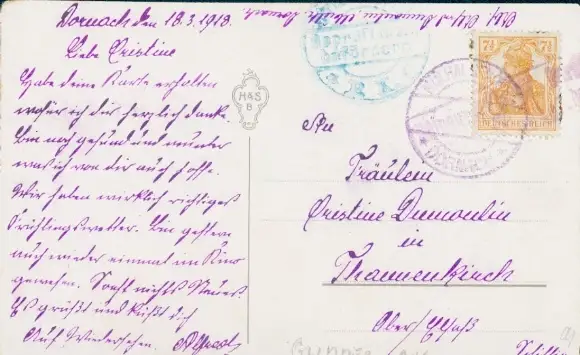 Dornach den 18.3.1918.
Liebe Cristine
Habe deine Karte erhalten
wofür ich dir herzlich danke.
Bin noch gesund und munter
was ich von dir auch hoffe.
Wir haben wirklich richtiges
Frühlingswetter. Bin gestern
auch wieder einmal im Kino
gewesen. Sonst nichts Neues.
Es grüßt und küßt dich
Auf Wiedersehen.
H&S
B
7½ 7½
DEUTSCHES REICH
DORNACH
An
Fräulein
Cristine Dumoulin
in
Thannenkirch
Ober/Elsaß